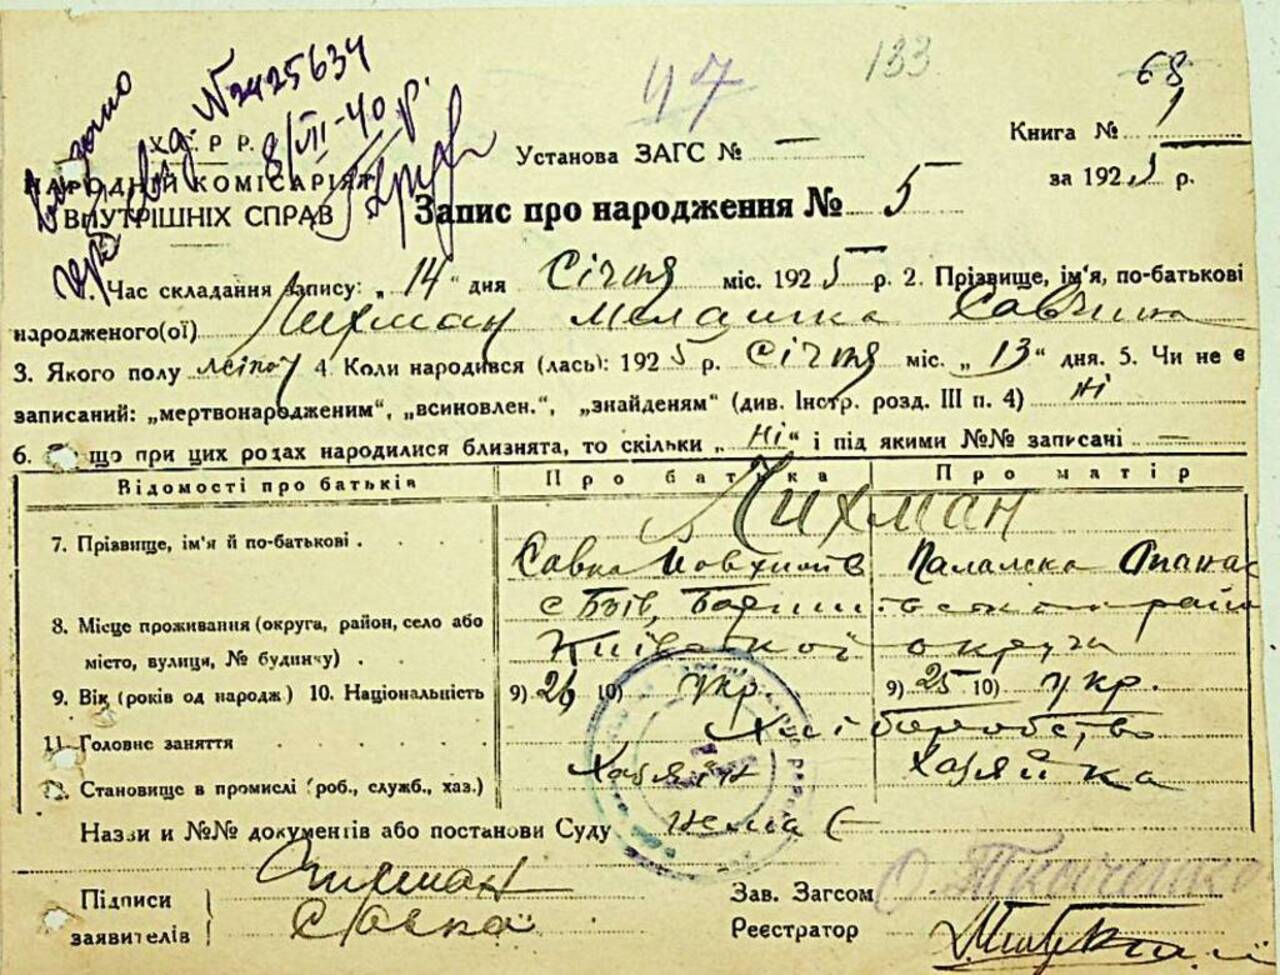 47 133 68
Видано свід. №2425634
8/VII-40 р.
Х. Р. Р.
НАРОДНІЙ КОМІСАРІЯТ
ВНУТРІШНІХ СПРАВ
Установа ЗАГС № —
Книга № 1
за 1925 р.
Запис про народження № 5
1. Час складання запису: „ 14 “ дня Січня міс. 1925 р. 2. Прізвище, ім'я, по-батькові
народженого(ої) Лихман Меланка Савчина
3. Якого полу жіноч 4. Коли народився (лась): 1925 р. Січня міс. „ 13 “ дня. 5. Чи не є
записаний: „мертвонародженим“, „всиновлен.“, „знайденям“ (див. Інстр. розд. III п. 4) Ні
6. що при цих родах народилися близнята, то скільки „ Ні “ і під якими №№ записані —
Відомості про батьків Про батька Про матір
Лихман
7. Прізвище, ім'я й по-батькові . . . .
Савка Палажка Опанас
8. Місце проживання (округа, район, село або
с Бзів, район
місто, вулиця, № будинчу) . .
Київської округи
9. Вік (років од народж) 10. Національність 9) 26 10) Укр. 9) 25 10) Укр.
11. Головне заняття . . . . . . Хліборобство
12. Становище в промислі (роб., служб., хаз.) Хазяїн Хазяйка
Назви и №№ документів або постанови Суду нема
Підписи Лихман Зав. Загсом О Ткаченко
заявителів Савка Реєстратор